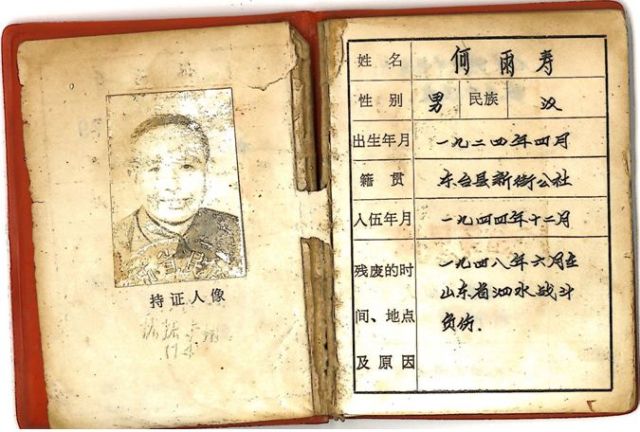 持证人像
姓名 何雨寿
性别 男 民族 汉
出生年月 一九二四年四月
籍贯 东台县新街公社
入伍年月 一九四四年十二月
残废的时 一九四八年六月在
间、地点 山东省泗水战斗
及原因 负伤.